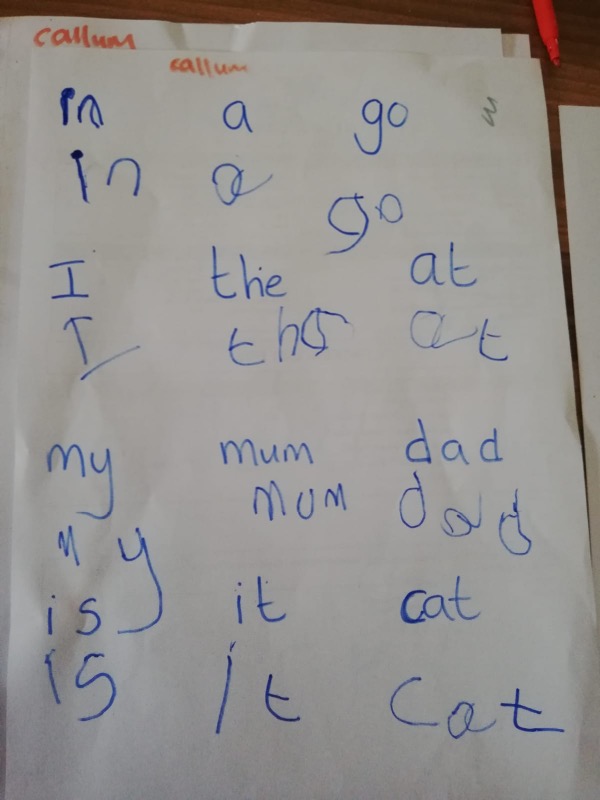 callum
callum
in a go
in a go
I the at
I the at
my mum dad
my mum dad
is it cat
is it cat